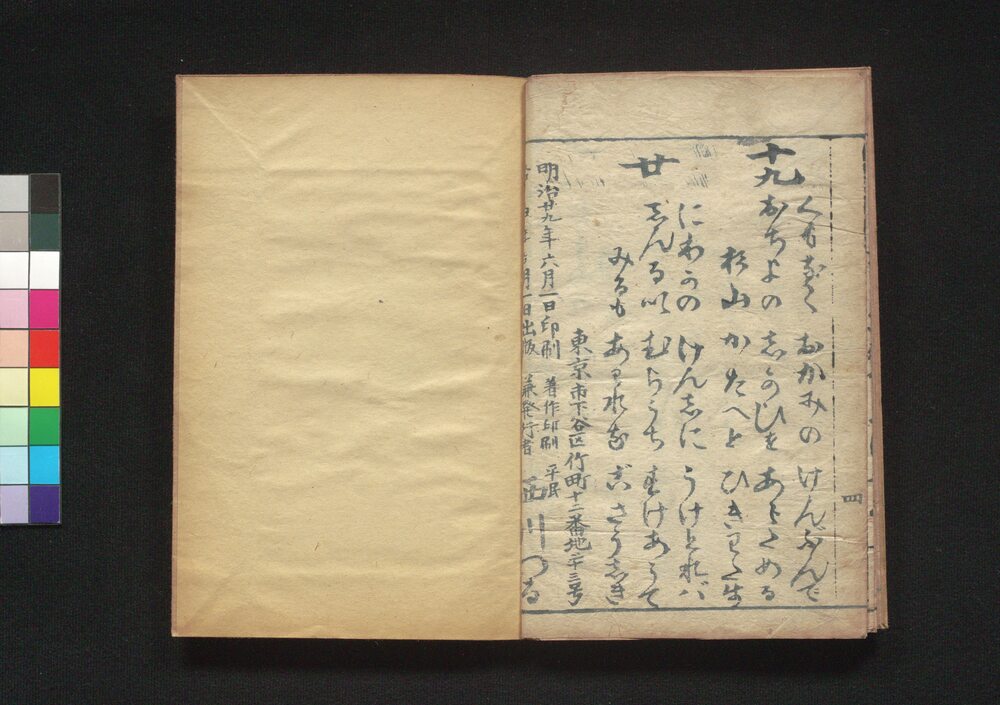 十九
くもなく おかみの けんぶんで
おちよの しがひを あらためる
杉山 かたへと ひきわたす
にわかの けんしに うけとれバ
廿
しんるい むらうち よけあうて
みるも あわれな
東京市下谷区竹町十二番地二十三号
明治廿九年六月一日印刷 著作印刷 平民
月一日出版 兼発行者
川つる
四